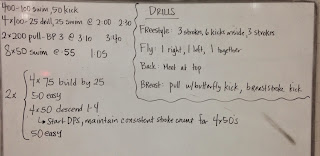 400-100 swim, 50 kick
4x100-75 drill, 25 swim @ 2:00 2:30
2x200 pull-BP 3 @ 3:10 3:40
8x50 swim @ :55 1:05
2x
4x75 build by 25
50 easy
4x50 descend 1-4
↳ Start DPS, maintain consistent stroke count for 4x50s
50 easy
DRILLS
Freestyle: 3 strokes, 6 kicks on side, 3 strokes
Fly: 1 right, 1 left, 1 together
Back: Meet at top
Breast: pull w/butterfly kick, breaststroke kick